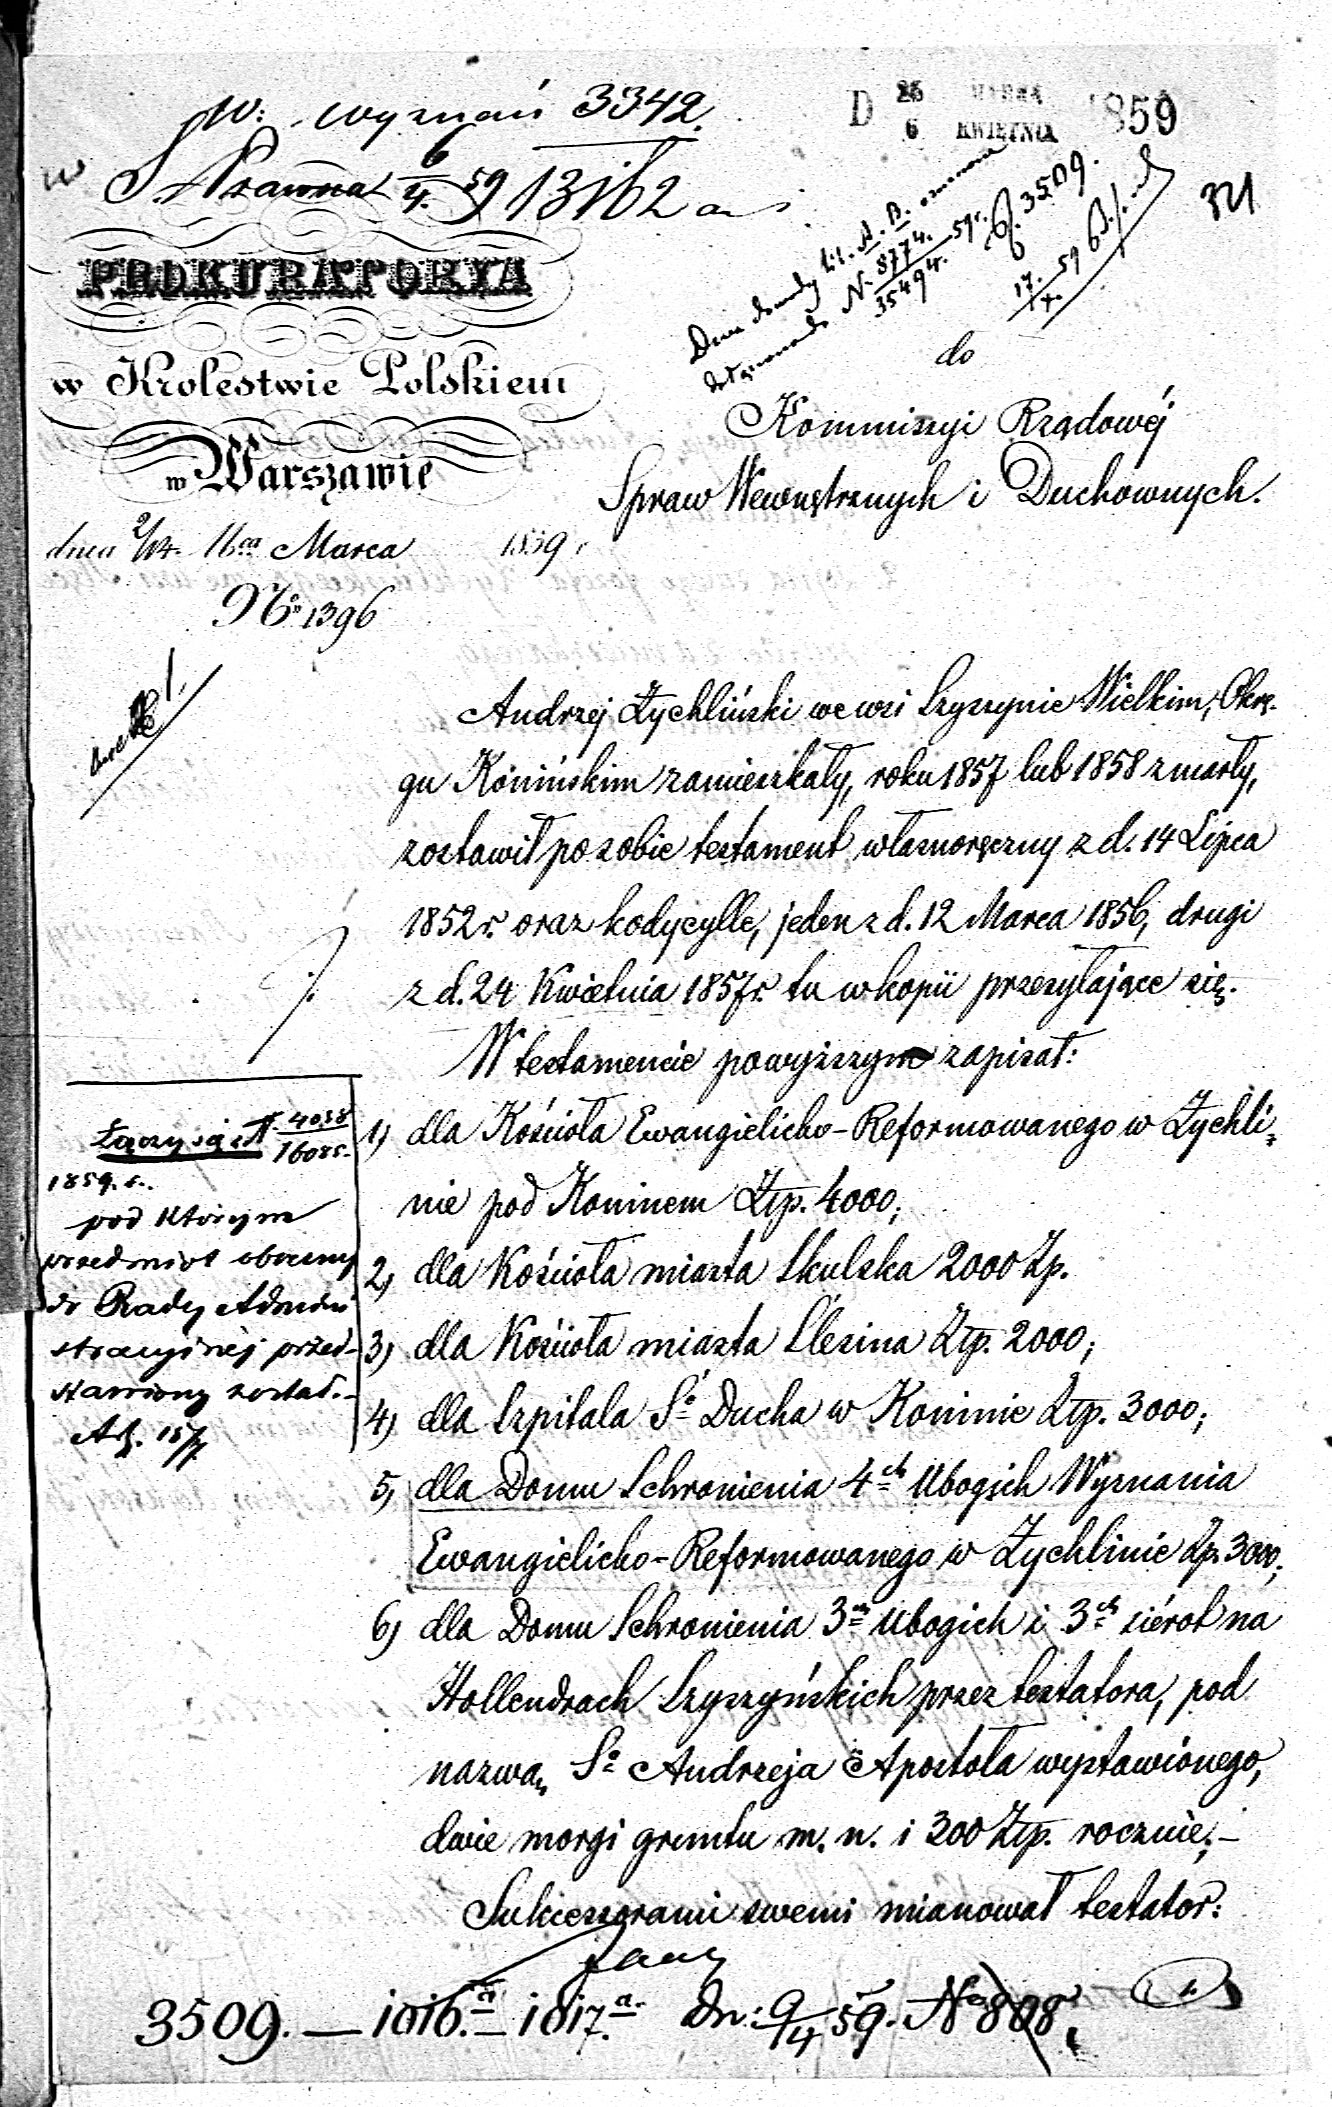 W. wyznań 3342.
w S. Prawna 6/4. 59 13162
D 25 MARCA 1859
6 KWIETNIA
321
Lit. A. B.
N. 8774. 59 r.
35494.
3509.
17. 59
PROKURATORYA
w Krolestwie Polskiem
w Warszawie
dnia 2/14. Marca 1859 r.
No. 1396
do
Kommissyi Rządowéj
Spraw Wewnętrznych i Duchownych.
Andrzej Żychliński we wsi Szyszynie Wielkim, Okrę-
gu Konińskim zamieszkały, roku 1857 lub 1858 zmarły,
zostawił po sobie testament własnoręczny z d. 14 Lipca
1852 r. oraz kodycylle, jeden z d. 12 Marca 1856, drugi
z d. 24 Kwietnia 1857 r. tu w kopii przesyłające się.
W testamencie powyższym zapisał:
1) dla Kościoła Ewangielicko-Reformowanego w Żychli-
nie pod Koninem Złp. 4000;
2) dla Kościoła miasta Skulska 2000 Zp.
3) dla Kościoła miasta Ślesina Złp. 2000;
4) dla Szpitala Sgo Ducha w Koninie Złp. 3000;
5) dla Domu Schronienia 4ch Ubogich Wyznania
Ewangielicko-Reformowanego w Żychlinie Zp. 3000;
6) dla Domu Schronienia 3ch Ubogich i 3ch siérot na
Hollendrach Szyszyńskich przez testatora, pod
nazwą Sgo Andrzeja Apostoła wystawionego,
dwie morgi gruntu m. n. i 300 Złp. rocznie;–
Sukcessorami swemi mianował testator:
Łączy się z N. 4038/16085.
1859. r.
pod którym
przedmiot obecny
do Rady Admini
stracyjnéj przed-
stawiony został.-
3509. — 1016.a — 1017.a Dn: 9/14 59. No 808.